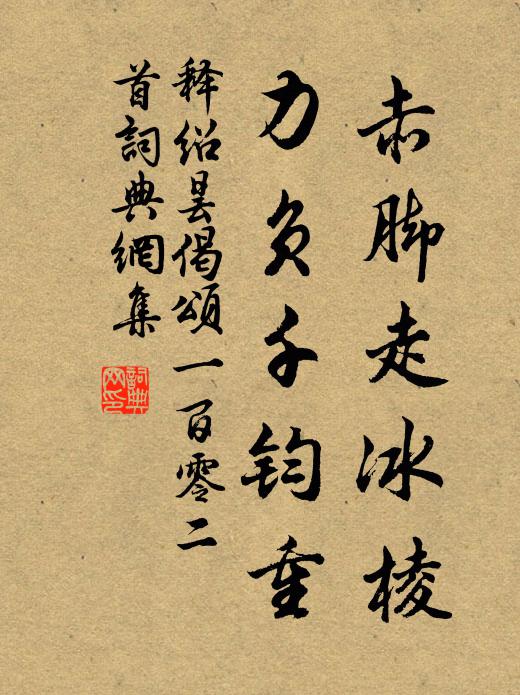 赤脚走冰棱
力负千钧重
释绍昙偈頌一百零二
首詞典網集
詞典
网印